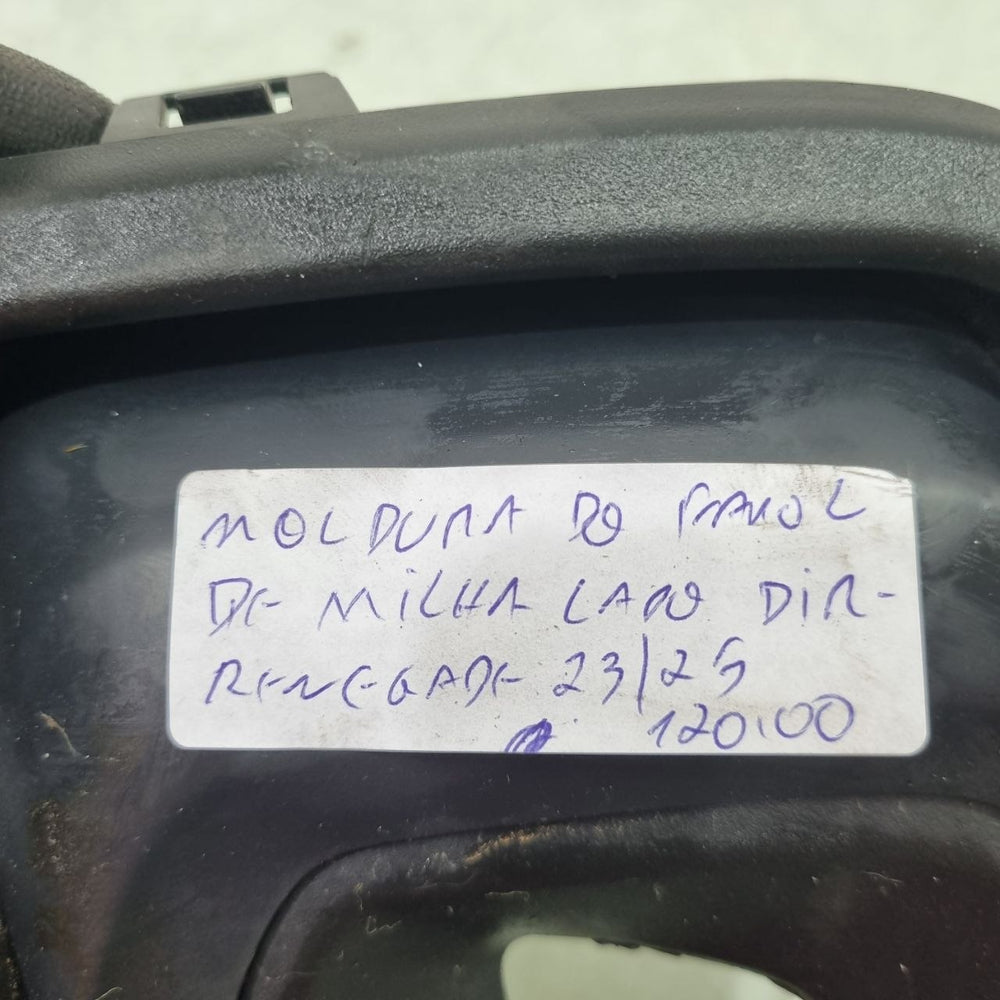 MOLDURA DO FAROL
DE MILHA LADO DIR-
RENEGADE 23/25
120.00